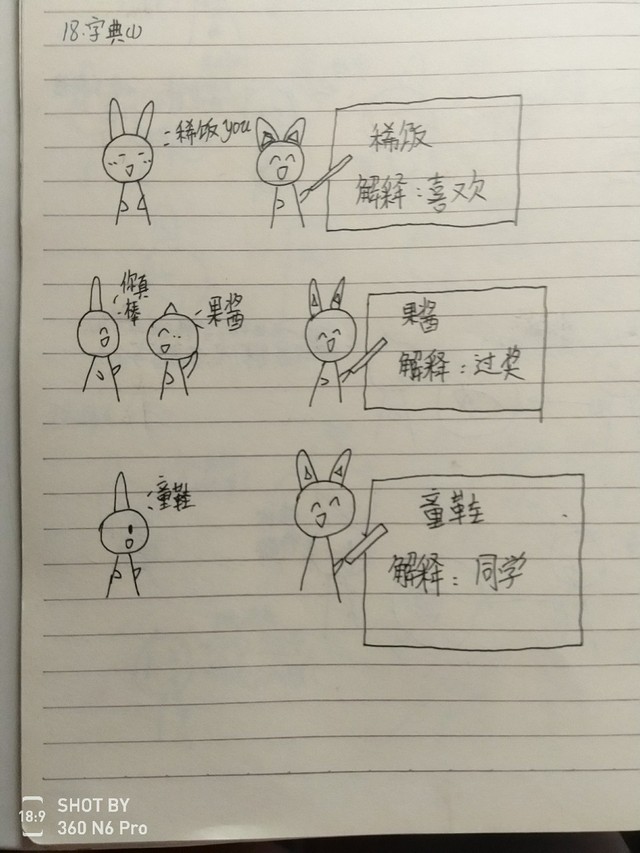 18.字典(1)
:稀饭you
稀饭
解释:喜欢
你真
棒
果酱
果酱
解释:过奖
:童鞋
童鞋
解释:同学
18:9
SHOT BY
360 N6 Pro